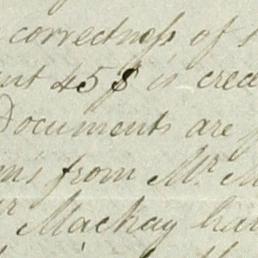 correctness of
45 is
Documents are
from Mr. M
Mackay ha